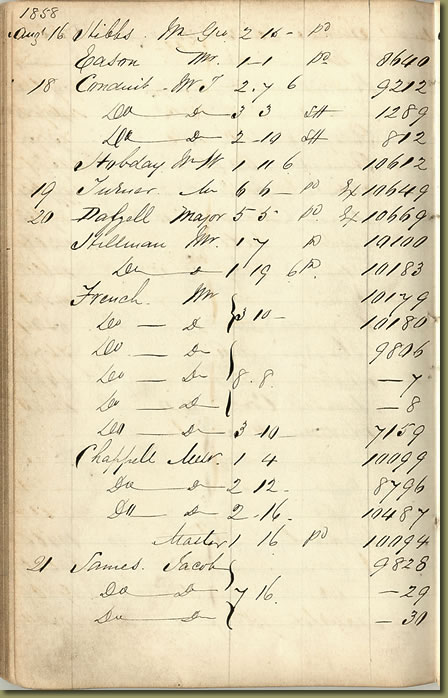 1858
Augt 16 Hibbs. Mr Geo 2 15 - pd
Eason Mr. 1-1 pd 8640
18 Conduit - W J 2. 7 6 9212
Do D 3 3 SH 1289
Do D 2 - 10 SH 812
Hobday Mr W 1 11 6 10612
19 Turner Mr 6 6 - pd Ex 10649
20 Dalzell Major 5 5 - pd Ex 10669
Hillman Mr. 1 7 pd 10100
Do D 1 19 6 pd 10183
French. Mr 10179
Do — D 3 10 - 10180
Do — D 9806
Do — D 8. 8. — 7
Do — D — 8
Do — D 3 - 10 - 7159
Chappell Messr. 1 4 10099
Do D 2 12 - 8796
Do D 2 - 16 - 10487
Master 1 16 pd 10094
21 James. Jacob 9828
Do D 7 16. — 29
Do D — 30